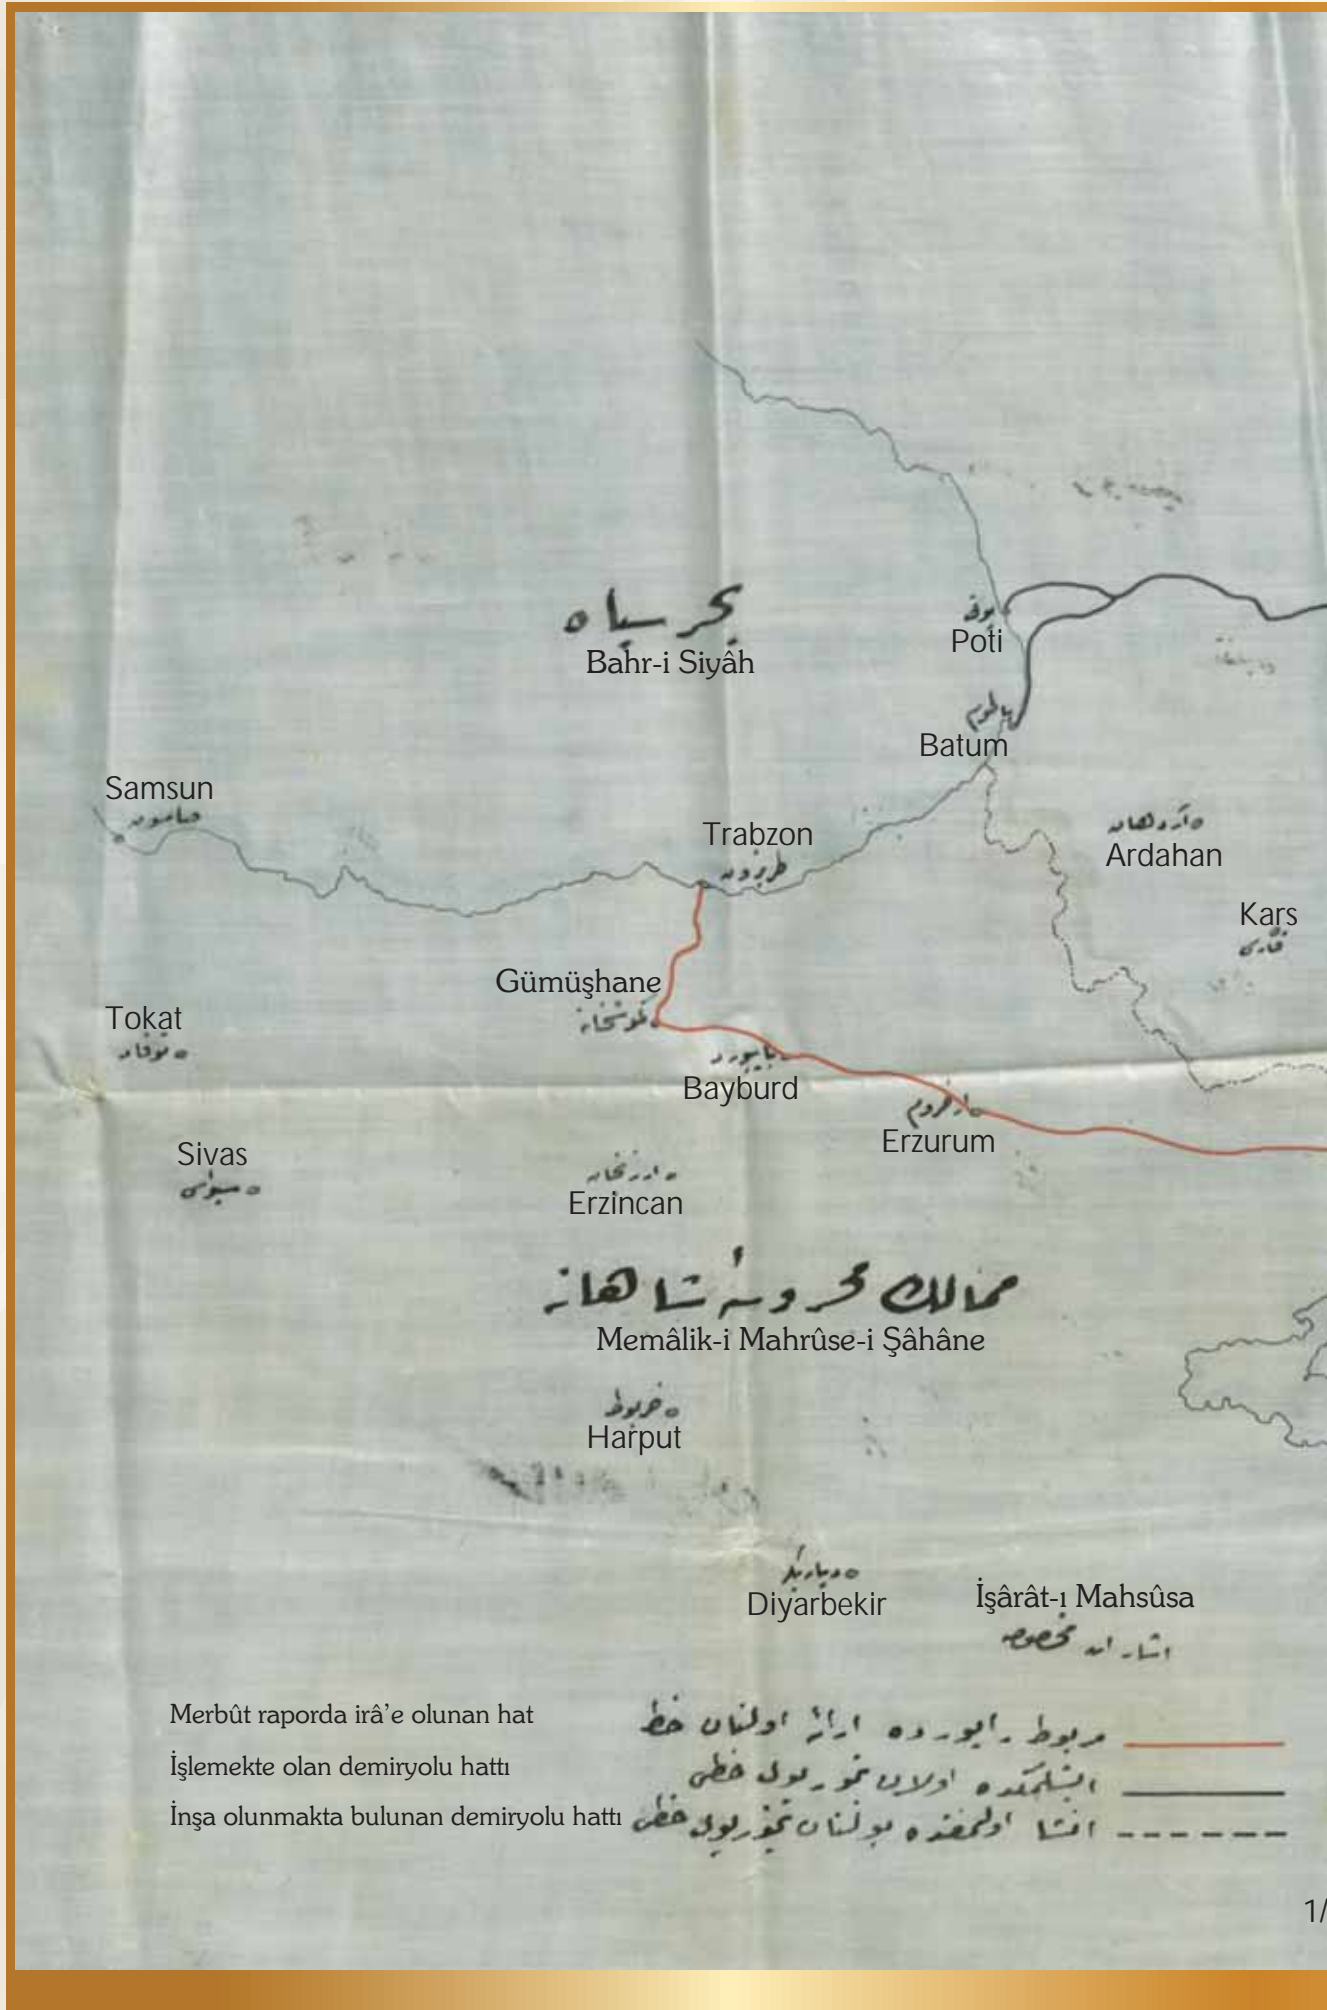 بحر سیاه
Bahr-i Siyâh
پوتی
Poti
باطوم
Batum
Samsun
صامسون
Trabzon
طربزون
آردهان
Ardahan
Kars
قارص
Gümüşhane
كموشخانه
Tokat
توقاد
بایبورد
Bayburd
ارضروم
Erzurum
Sivas
سیواس
ارزنجان
Erzincan
ممالك محروسهٔ شاهانه
Memâlik-i Mahrûse-i Şâhâne
خربوط
Harput
دیاربكر
Diyarbekir
İşârât-ı Mahsûsa
اشارات مخصوصه
Merbût raporda irâ'e olunan hat
مربوط راپورده ارائه اولنان خط
İşlemekte olan demiryolu hattı
ایشلمكده اولان تموریول خطی
İnşa olunmakta bulunan demiryolu hattı
انشا اولنمقده بولنان تموریول خطی
1/